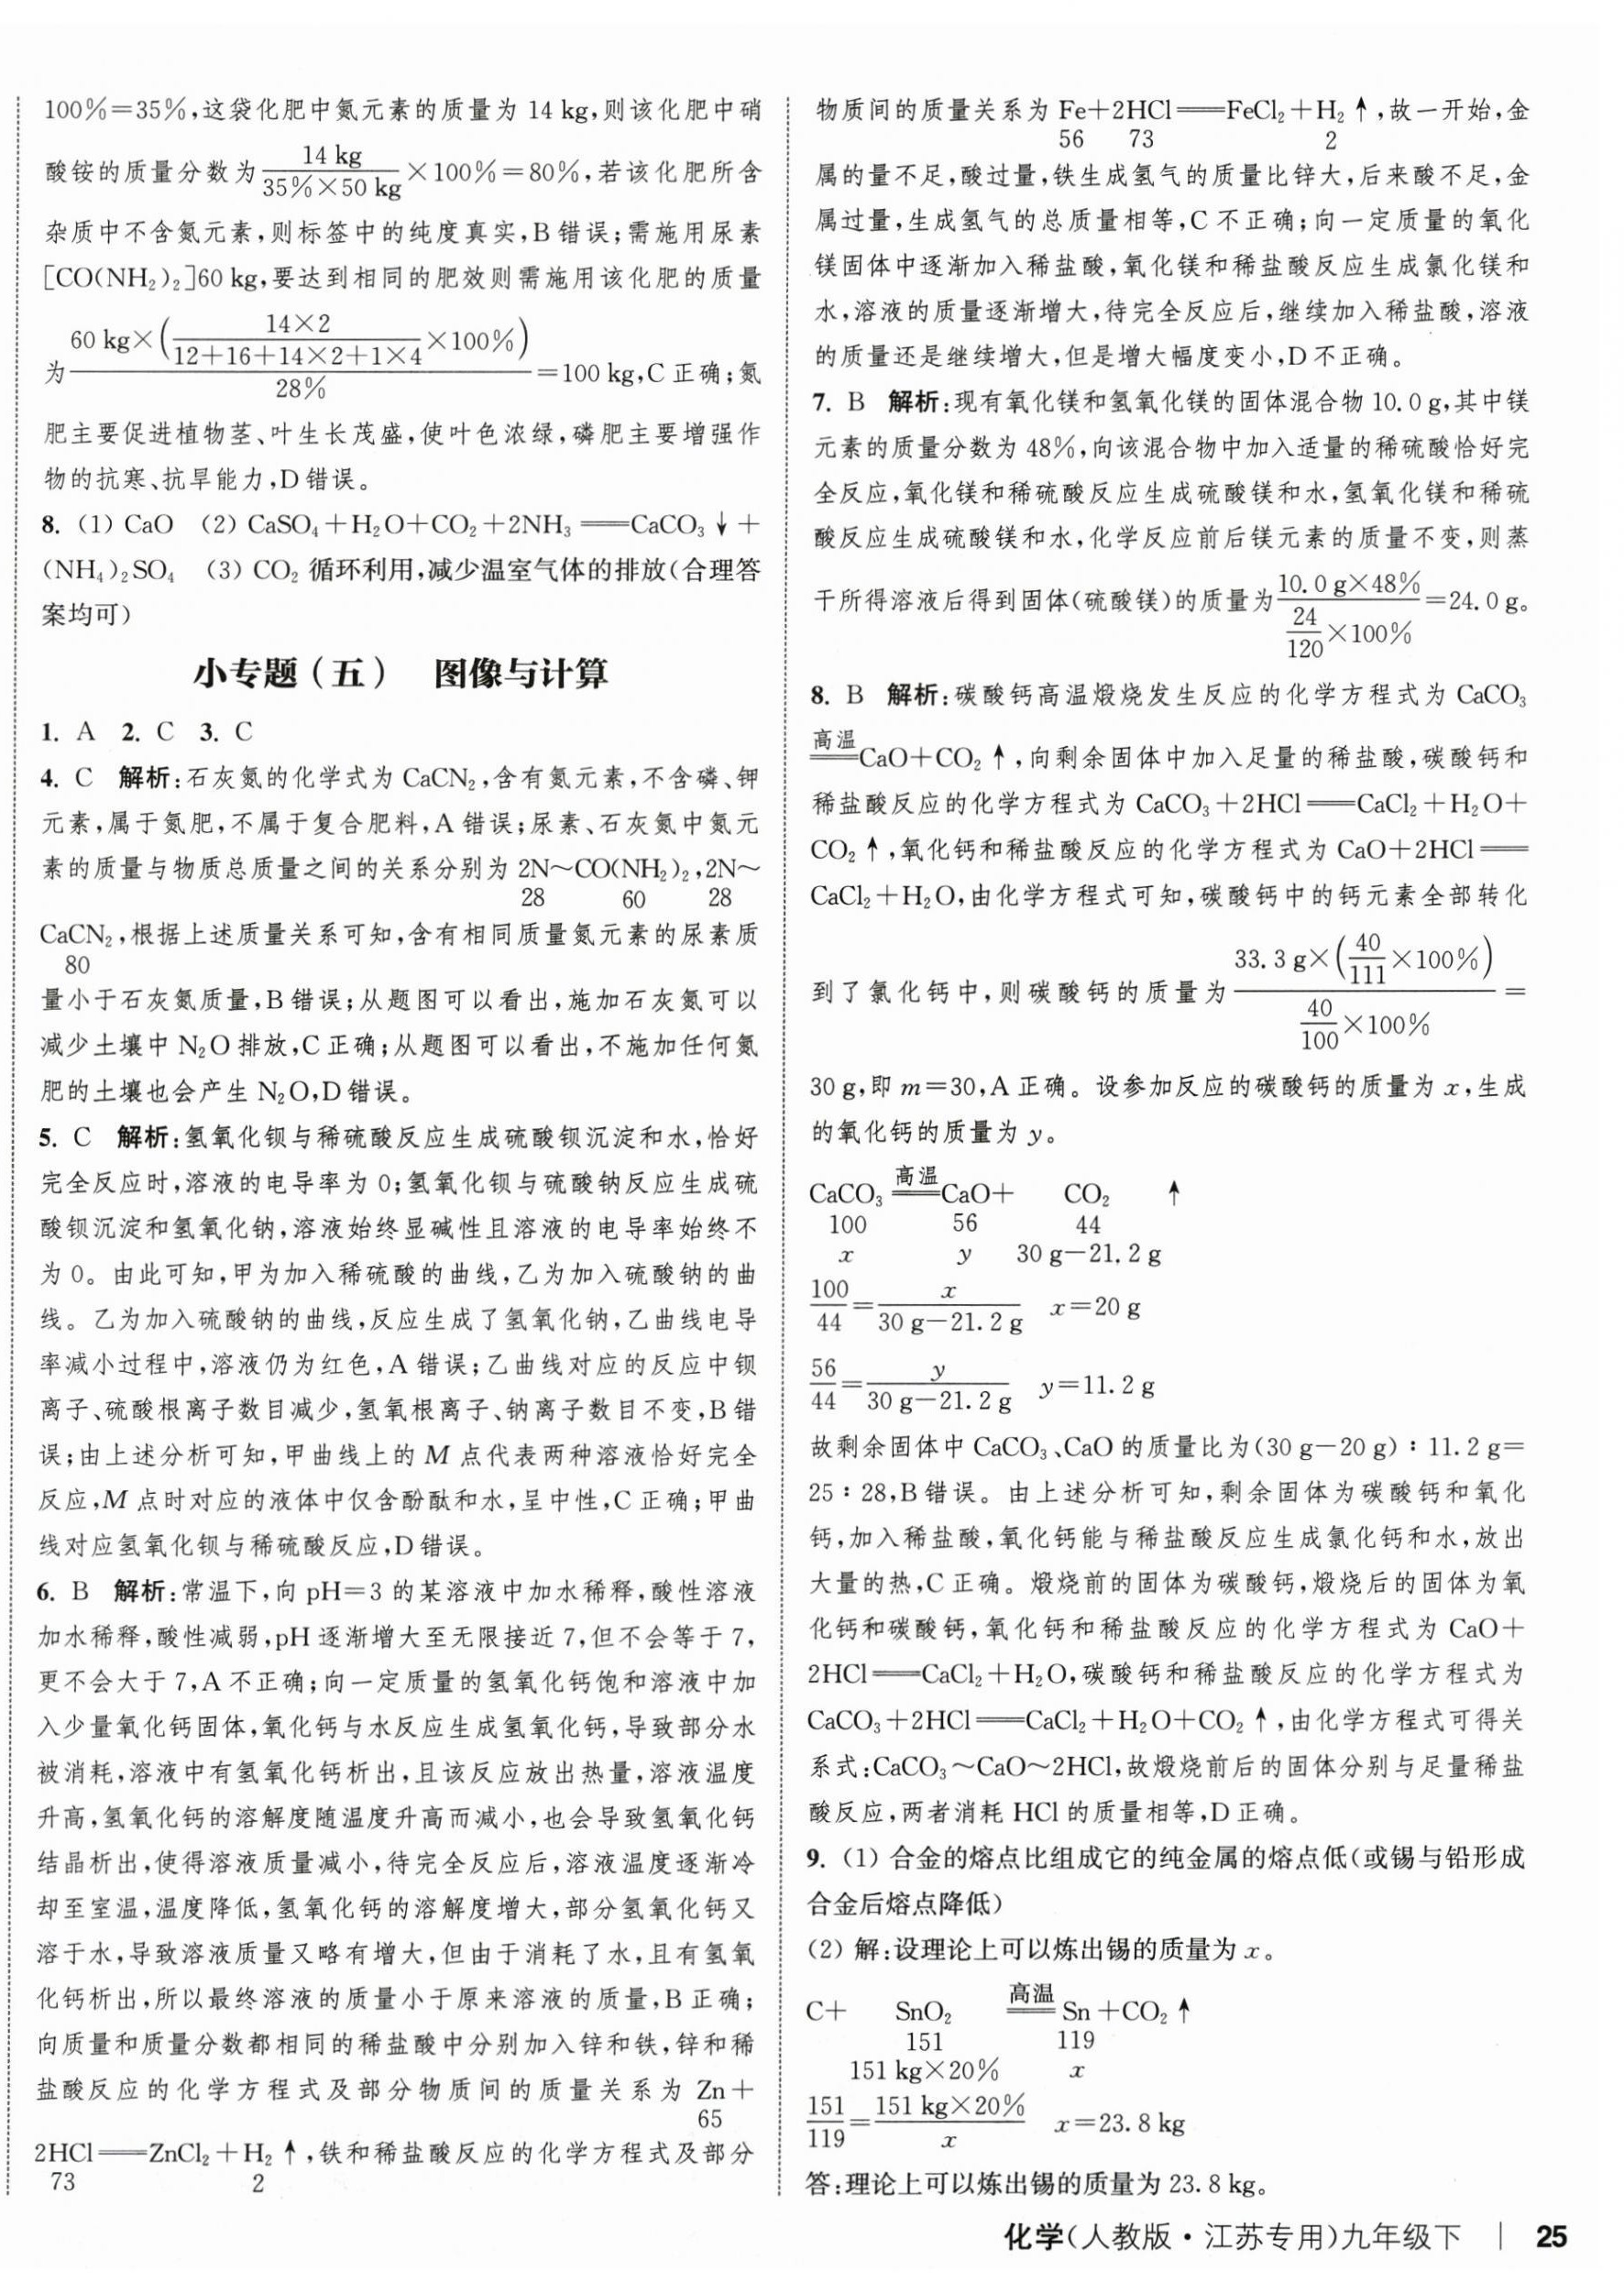 100%=35%,这袋化肥中氮元素的质量为 14 kg,则该化肥中硝
酸铵的质量分数为 14 kg/(35%×50 kg) ×100%=80%,若该化肥所含
杂质中不含氮元素,则标签中的纯度真实,B 错误;需施用尿素
[CO(NH₂)₂]60 kg,要达到相同的肥效则需施用该化肥的质量
为 60 kg×(14×2/(12+16+14×2+1×4)×100%)/28% =100 kg,C 正确;氮
肥主要促进植物茎、叶生长茂盛,使叶色浓绿,磷肥主要增强作
物的抗寒、抗旱能力,D 错误。
8. (1) CaO (2) CaSO₄+H₂O+CO₂+2NH₃══CaCO₃↓+
(NH₄)₂SO₄ (3) CO₂ 循环利用,减少温室气体的排放(合理答
案均可)
小专题(五) 图像与计算
1. A 2. C 3. C
4. C 解析:石灰氮的化学式为 CaCN₂,含有氮元素,不含磷、钾
元素,属于氮肥,不属于复合肥料,A 错误;尿素、石灰氮中氮元
素的质量与物质总质量之间的关系分别为 2N~CO(NH₂)₂,2N~
28 60 28
CaCN₂,根据上述质量关系可知,含有相同质量氮元素的尿素质
80
量小于石灰氮质量,B 错误;从题图可以看出,施加石灰氮可以
减少土壤中 N₂O 排放,C 正确;从题图可以看出,不施加任何氮
肥的土壤也会产生 N₂O,D 错误。
5. C 解析:氢氧化钡与稀硫酸反应生成硫酸钡沉淀和水,恰好
完全反应时,溶液的电导率为 0;氢氧化钡与硫酸钠反应生成硫
酸钡沉淀和氢氧化钠,溶液始终显碱性且溶液的电导率始终不
为 0。由此可知,甲为加入稀硫酸的曲线,乙为加入硫酸钠的曲
线。乙为加入硫酸钠的曲线,反应生成了氢氧化钠,乙曲线电导
率减小过程中,溶液仍为红色,A 错误;乙曲线对应的反应中钡
离子、硫酸根离子数目减少,氢氧根离子、钠离子数目不变,B 错
误;由上述分析可知,甲曲线上的 M 点代表两种溶液恰好完全
反应,M 点时对应的液体中仅含酚酞和水,呈中性,C 正确;甲曲
线对应氢氧化钡与稀硫酸反应,D 错误。
6. B 解析:常温下,向 pH=3 的某溶液中加水稀释,酸性溶液
加水稀释,酸性减弱,pH 逐渐增大至无限接近 7,但不会等于 7,
更不会大于 7,A 不正确;向一定质量的氢氧化钙饱和溶液中加
入少量氧化钙固体,氧化钙与水反应生成氢氧化钙,导致部分水
被消耗,溶液中有氢氧化钙析出,且该反应放出热量,溶液温度
升高,氢氧化钙的溶解度随温度升高而减小,也会导致氢氧化钙
结晶析出,使得溶液质量减小,待完全反应后,溶液温度逐渐冷
却至室温,温度降低,氢氧化钙的溶解度增大,部分氢氧化钙又
溶于水,导致溶液质量又略有增大,但由于消耗了水,且有氢氧
化钙析出,所以最终溶液的质量小于原来溶液的质量,B 正确;
向质量和质量分数都相同的稀盐酸中分别加入锌和铁,锌和稀
盐酸反应的化学方程式及部分物质间的质量关系为 Zn+
65
2HCl══ZnCl₂+H₂↑,铁和稀盐酸反应的化学方程式及部分
73 2
物质间的质量关系为 Fe+2HCl══FeCl₂+H₂↑,故一开始,金
56 73 2
属的量不足,酸过量,铁生成氢气的质量比锌大,后来酸不足,金
属过量,生成氢气的总质量相等,C 不正确;向一定质量的氧化
镁固体中逐渐加入稀盐酸,氧化镁和稀盐酸反应生成氯化镁和
水,溶液的质量逐渐增大,待完全反应后,继续加入稀盐酸,溶液
的质量还是继续增大,但是增大幅度变小,D 不正确。
7. B 解析:现有氧化镁和氢氧化镁的固体混合物 10.0 g,其中镁
元素的质量分数为 48%,向该混合物中加入适量的稀硫酸恰好完
全反应,氧化镁和稀硫酸反应生成硫酸镁和水,氢氧化镁和稀硫
酸反应生成硫酸镁和水,化学反应前后镁元素的质量不变,则蒸
干所得溶液后得到固体(硫酸镁)的质量为 10.0 g×48%/(24/120×100%) =24.0 g。
8. B 解析:碳酸钙高温煅烧发生反应的化学方程式为 CaCO₃
高温══CaO+CO₂↑,向剩余固体中加入足量的稀盐酸,碳酸钙和
稀盐酸反应的化学方程式为 CaCO₃+2HCl══CaCl₂+H₂O+
CO₂↑,氧化钙和稀盐酸反应的化学方程式为 CaO+2HCl══
CaCl₂+H₂O,由化学方程式可知,碳酸钙中的钙元素全部转化
到了氯化钙中,则碳酸钙的质量为 33.3 g×(40/111×100%)/(40/100×100%) =
30 g,即 m=30,A 正确。设参加反应的碳酸钙的质量为 x,生成
的氧化钙的质量为 y。
CaCO₃ 高温══ CaO+ CO₂ ↑
100 56 44
x y 30 g−21.2 g
100/44=x/(30 g−21.2 g) x=20 g
56/44=y/(30 g−21.2 g) y=11.2 g
故剩余固体中 CaCO₃、CaO 的质量比为(30 g−20 g)∶11.2 g=
25∶28,B 错误。由上述分析可知,剩余固体为碳酸钙和氧化
钙,加入稀盐酸,氧化钙能与稀盐酸反应生成氯化钙和水,放出
大量的热,C 正确。煅烧前的固体为碳酸钙,煅烧后的固体为氧
化钙和碳酸钙,氧化钙和稀盐酸反应的化学方程式为 CaO+
2HCl══CaCl₂+H₂O,碳酸钙和稀盐酸反应的化学方程式为
CaCO₃+2HCl══CaCl₂+H₂O+CO₂↑,由化学方程式可得关
系式:CaCO₃~CaO~2HCl,故煅烧前后的固体分别与足量稀盐
酸反应,两者消耗 HCl 的质量相等,D 正确。
9. (1) 合金的熔点比组成它的纯金属的熔点低(或锡与铅形成
合金后熔点降低)
(2) 解:设理论上可以炼出锡的质量为 x。
C+ SnO₂ 高温══ Sn+CO₂↑
151 119
151 kg×20% x
151/119=151 kg×20%/x x=23.8 kg
答:理论上可以炼出锡的质量为 23.8 kg。
化学(人教版·江苏专用)九年级下 | 25